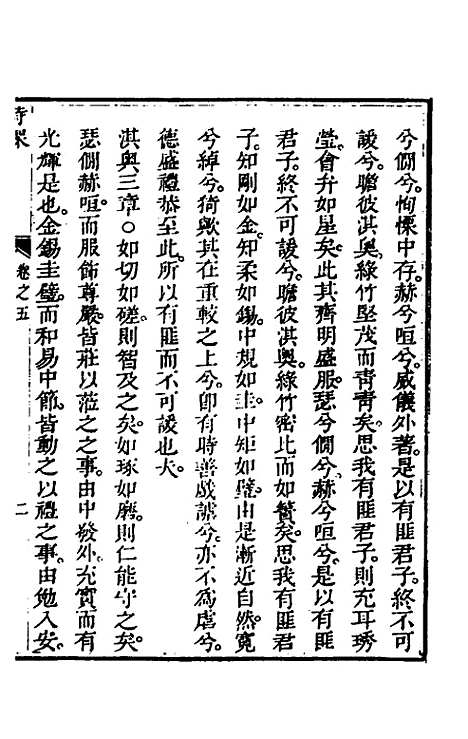 兮僩兮。恂慄中存。赫兮咺兮。威儀外著。是以有匪君子。終不可
諼兮。瞻彼淇奧。綠竹堅茂而靑靑矣。思我有匪君子。則充耳琇
瑩。會弁如星矣。此其齊明盛服。瑟兮僩兮。赫兮咺兮。是以有匪
君子。終不可諼兮。瞻彼淇奧。綠竹密比而如簀矣。思我有匪君
子。知剛如金。知柔如錫。中規如圭。中矩如璧。由是漸近自然。寬
兮綽兮。猗歟其在重較之上兮。卽有時善戲謔兮。亦不為虐兮。
德盛禮恭至此。所以有匪而不可諼也夫。
淇奧三章○如切如磋。則智及之矣。如琢如磨。則仁能守之矣。
瑟僩赫咺。而服飾尊嚴。皆莊以蒞之之事。由中發外。充實而有
光輝是也。金錫圭璧。而和易中節。皆動之以禮之事。由勉入安。
卷之五
二